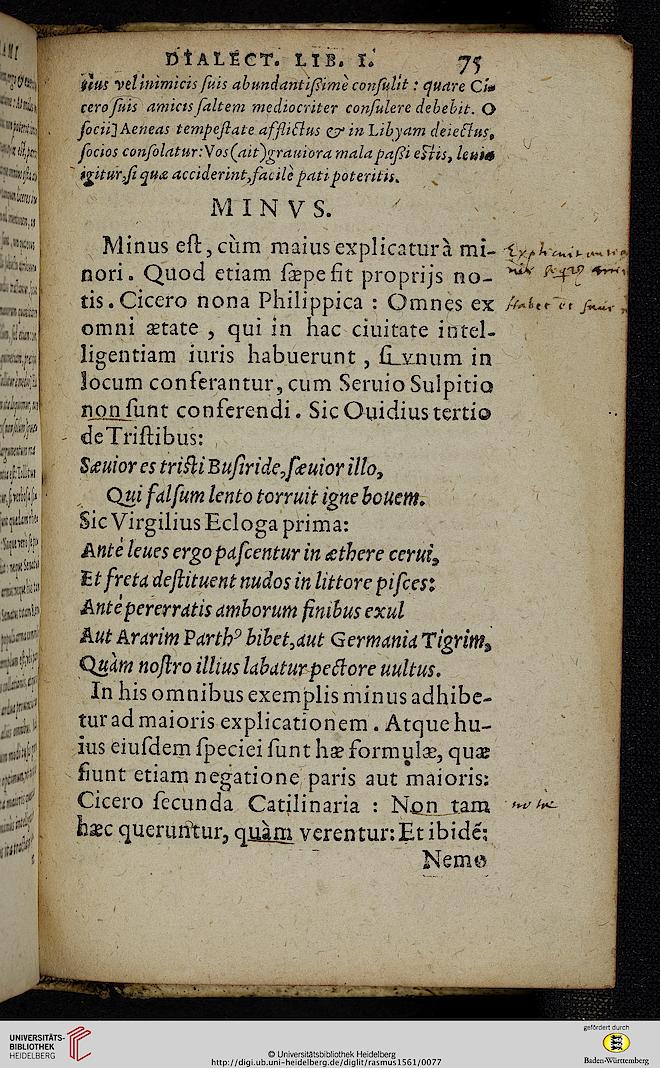 DIALECT. LIB. I. 75
uius vel inimicis ſuis abundantiſsimè conſulit : quare Ci-
cero ſuis amicis ſaltem mediocriter conſulere debebit. O
ſocii] Aeneas tempeſtate afflictus & in Libyam deiectus,
ſocios conſolatur: Vos (ait) grauiora mala paſsi eſtis, leuia
igitur, ſi quæ acciderint, facilè pati poteritis.
MINVS.
Minus eſt, cùm maius explicatur à mi-
nori. Quod etiam ſæpe fit proprijs no-
tis. Cicero nona Philippica : Omnes ex
omni ætate , qui in hac ciuitate intel-
ligentiam iuris habuerunt , ſi vnum in
locum conferantur, cum Seruio Sulpitio
non ſunt conferendi. Sic Ouidius tertio
de Triſtibus:
Sæuior es triſti Buſiride, ſæuior illo,
Qui falſum lento torruit igne bouem.
Sic Virgilius Ecloga prima:
Antè leues ergo paſcentur in æthere cerui,
Et freta deſtituent nudos in littore piſces:
Antè pererratis amborum finibus exul
Aut Ararim Parthꝰ bibet, aut Germania Tigrim,
Quàm noſtro illius labatur pectore uultus.
In his omnibus exemplis minus adhibe-
tur ad maioris explicationem. Atque hu-
ius eiuſdem ſpeciei ſunt hæ formulæ, quæ
fiunt etiam negatione paris aut maioris:
Cicero ſecunda Catilinaria : Non tam
hæc queruntur, quàm verentur: Et ibidē:
Nemo
UNIVERSITÄTS-
BIBLIOTHEK
HEIDELBERG
© Universitätsbibliothek Heidelberg
http://digi.ub.uni-heidelberg.de/diglit/rasmus1561/0077
gefördert durch
Baden-Württemberg